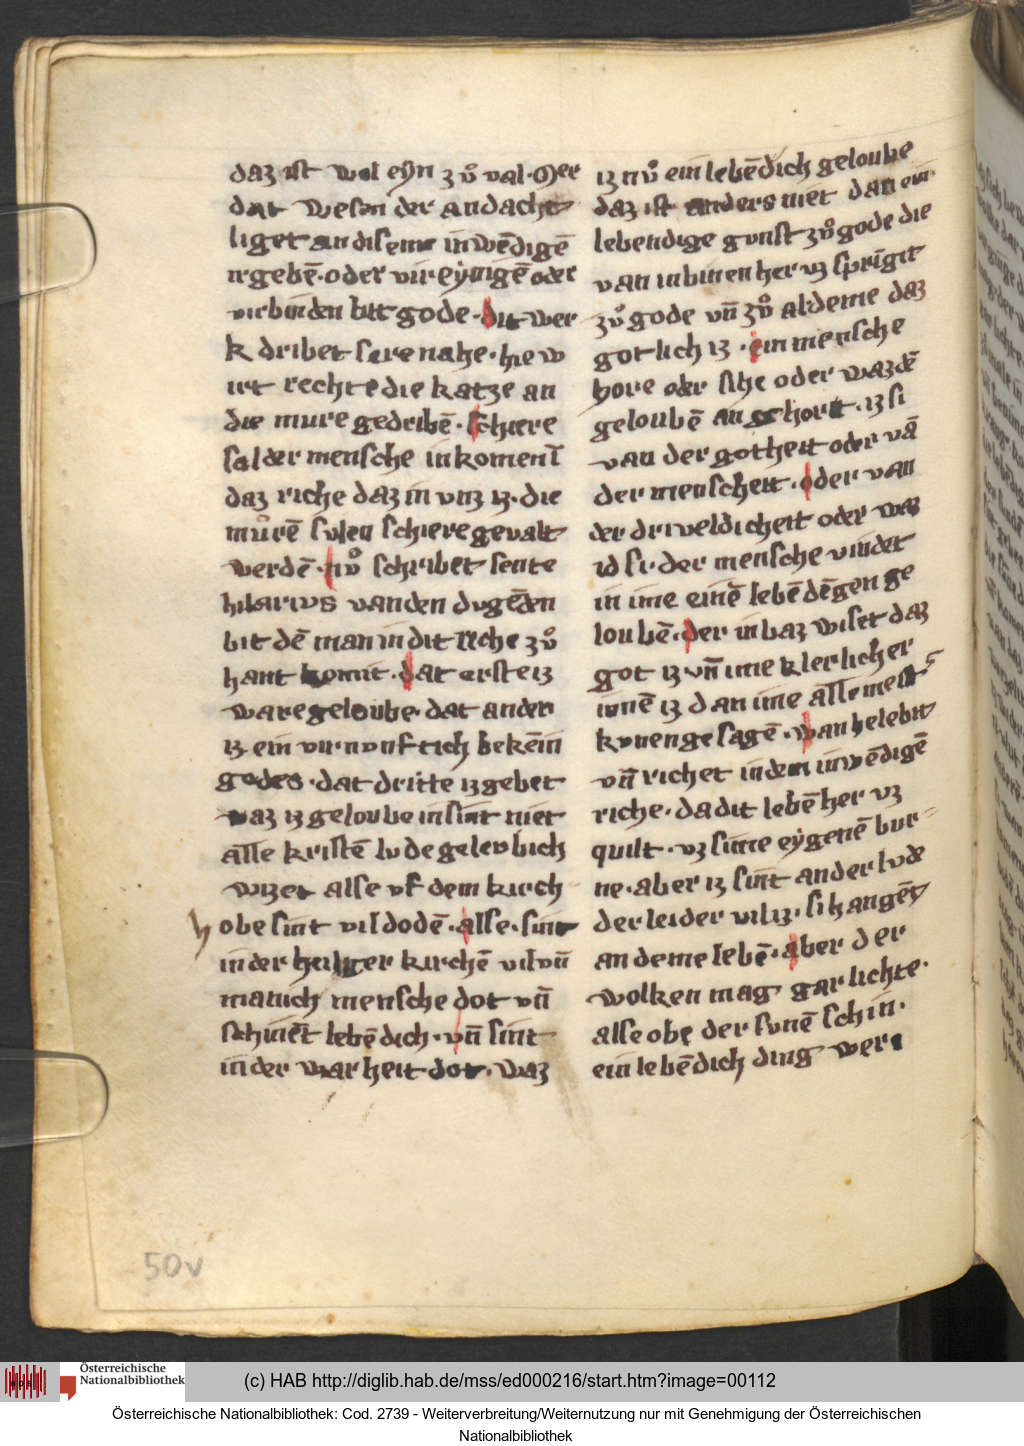 daz ist wol eyn zuͦ val · Mer
dat wesen der andacht
liget an diseme inwēdigē
irgebē · oder vireẏnigē oder
virbinden bit gode · dit wer
k dribet sere nahe · hie w
irt rechte die katze an
die mure gedribē · schiere
sal der mensche in komen
daz riche daz in vnz iz · die
muͦrē sulen schiere gevalt
werdē · nuͦ schribet sente
hilarius van den dugēden
bit dē man in dit riche zuͦ
hant komit · dat erste iz
ware geloube · dat ander
iz ein virnunftich bekēin
godes · dat dritte iz gebet
waz iz geloube in sint niet
alle kristē lude geloubich
wizet alse uf dem kirch
hobe sint vil dodē · alse · sint
in der heiliger kirchē vil vn̄
manich mensche dot vn̄
schinēt lebēdich · vn̄ sint
in der warheit dot · Waz
iz nuͦ ein lebēdich geloube
daz ist anders niet dan ein
lebendige gunst zuͦ gode die
van inbinen her uz sprīgit
zuͦ gode vn̄ zuͦ aldeme daz
gotlich iz · ein mensche
hore oder sihe oder wazdē
geloubē an gehorit · iz si
van der gotheit oder vā
der menscheit · oder van
der driveldicheit oder waz
id si · der mensche vindet
in ime einē lebēdēgen ge
loubē · der in baz wiset daz
got iz vn̄ ime klerlicher
innē iz dan ime alle meist
kunen gesagē · wan he lebit
vn̄ richet in dem inwēdigē
riche · da dit lebē her uz
quilt · uz sime eẏgenē bur
ne · aber iz sint ander lude
der leider vil iz · si hangēt
an deme lebē · aber der
wolken mag gar lichte ·
alse obe der sunē schin ·
ein lebēdich ding were
50v
Österreichische
Nationalbibliothek
(c) HAB http://diglib.hab.de/mss/ed000216/start.htm?image=00112
Österreichische Nationalbibliothek: Cod. 2739 - Weiterverbreitung/Weiternutzung nur mit Genehmigung der Österreichischen
Nationalbibliothek